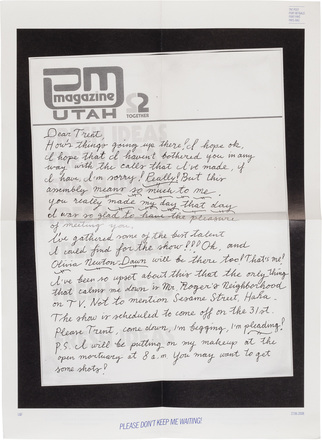 PM
magazine
UTAH
2
TOGETHER
Dear Trent,
How's things going up there? I hope ok.
I hope that I haven't bothered you in any
way with the calls that I've made, if
I have, I'm sorry! Really! But this
assembly means so much to me.
You really made my day that day
I was so glad to have the pleasure
of meeting you.
I've gathered some of the best talent
I could find for the show!!! Oh, and
Olivia Newton-Dawn will be there too! That's me!
I've been so upset about this that the only thing
that calms me down is Mr. Roger's Neighborhood
on T.V. Not to mention Sesame Street, Haha.
The show is scheduled to come off on the 31st.
Please Trent, come down, I'm begging, I'm pleading!
P.S. I will be putting on my makeup at the
open mortuary at 8 a.m. You may want to get
some shots!
PLEASE DON'T KEEP ME WAITING!